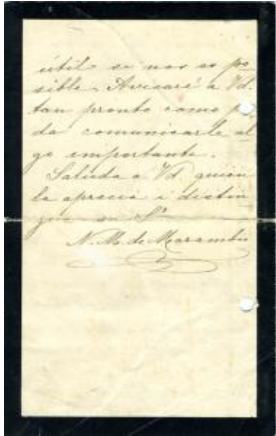 útil se nos es po-
sible. Avisaré a Vd.
tan pronto como pu-
da comunicarle al
go importante.
Saluda a Vd quien
la aprecia i distin
gue su
N. M. de Marambio